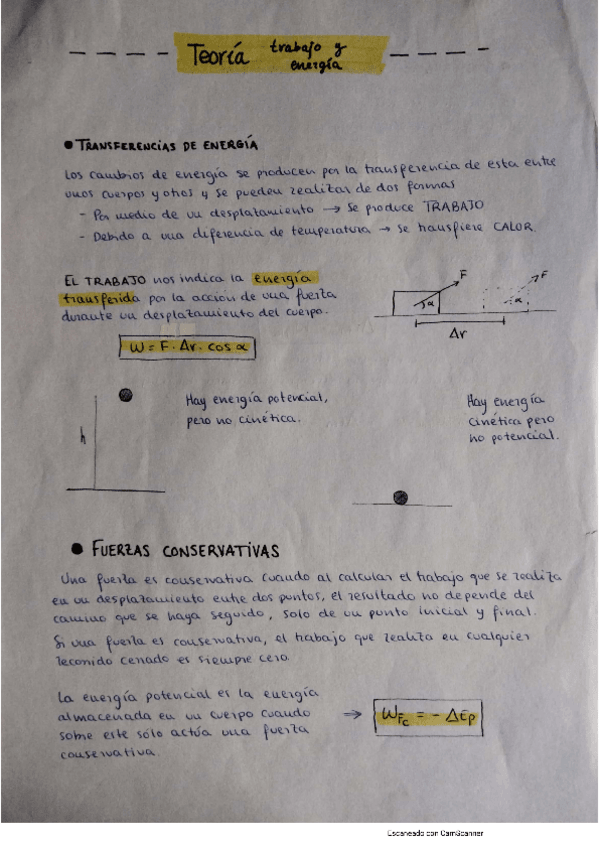 Teoría trabajo y
energía
● TRANSFERENCIAS DE ENERGÍA
Los cambios de energía se producen por la transferencia de esta entre
unos cuerpos y otros y se pueden realizar de dos formas
- Por medio de un desplazamiento → Se produce TRABAJO
- Debido a una diferencia de temperatura → se transfiere CALOR.
EL TRABAJO nos indica la energía
transferida por la acción de una fuerza
durante un desplazamiento del cuerpo.
F
α
F
α
Δr
W = F · Δr · cos α
h
Hay energía potencial,
pero no cinética.
Hay energía
cinética pero
no potencial.
● FUERZAS CONSERVATIVAS
Una fuerza es conservativa cuando al calcular el trabajo que se realiza
en un desplazamiento entre dos puntos, el resultado no depende del
camino que se haya seguido, solo de un punto inicial y final.
Si una fuerza es conservativa, el trabajo que realiza en cualquier
recorrido cerrado es siempre cero.
La energía potencial es la energía
almacenada en un cuerpo cuando
sobre este sólo actúa una fuerza
conservativa.
⇒ W_Fc = - ΔEp
Escaneado con CamScanner